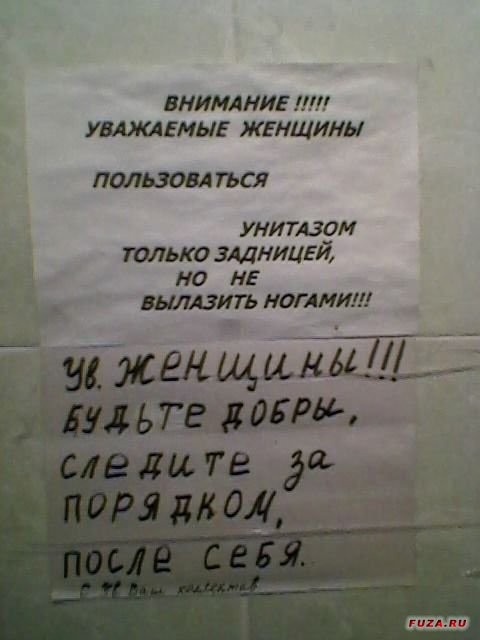 ВНИМАНИЕ !!!!!
УВАЖАЕМЫЕ ЖЕНЩИНЫ
ПОЛЬЗОВАТЬСЯ
УНИТАЗОМ
ТОЛЬКО ЗАДНИЦЕЙ,
НО НЕ
ВЫЛАЗИТЬ НОГАМИ!!!
Ув. ЖЕНЩИНЫ!!!
БУДЬТЕ ДОБРЫ,
СЛЕДИТЕ ЗА
ПОРЯДКОМ,
ПОСЛЕ СЕБЯ.
Ваш коллектив
FUZA.RU